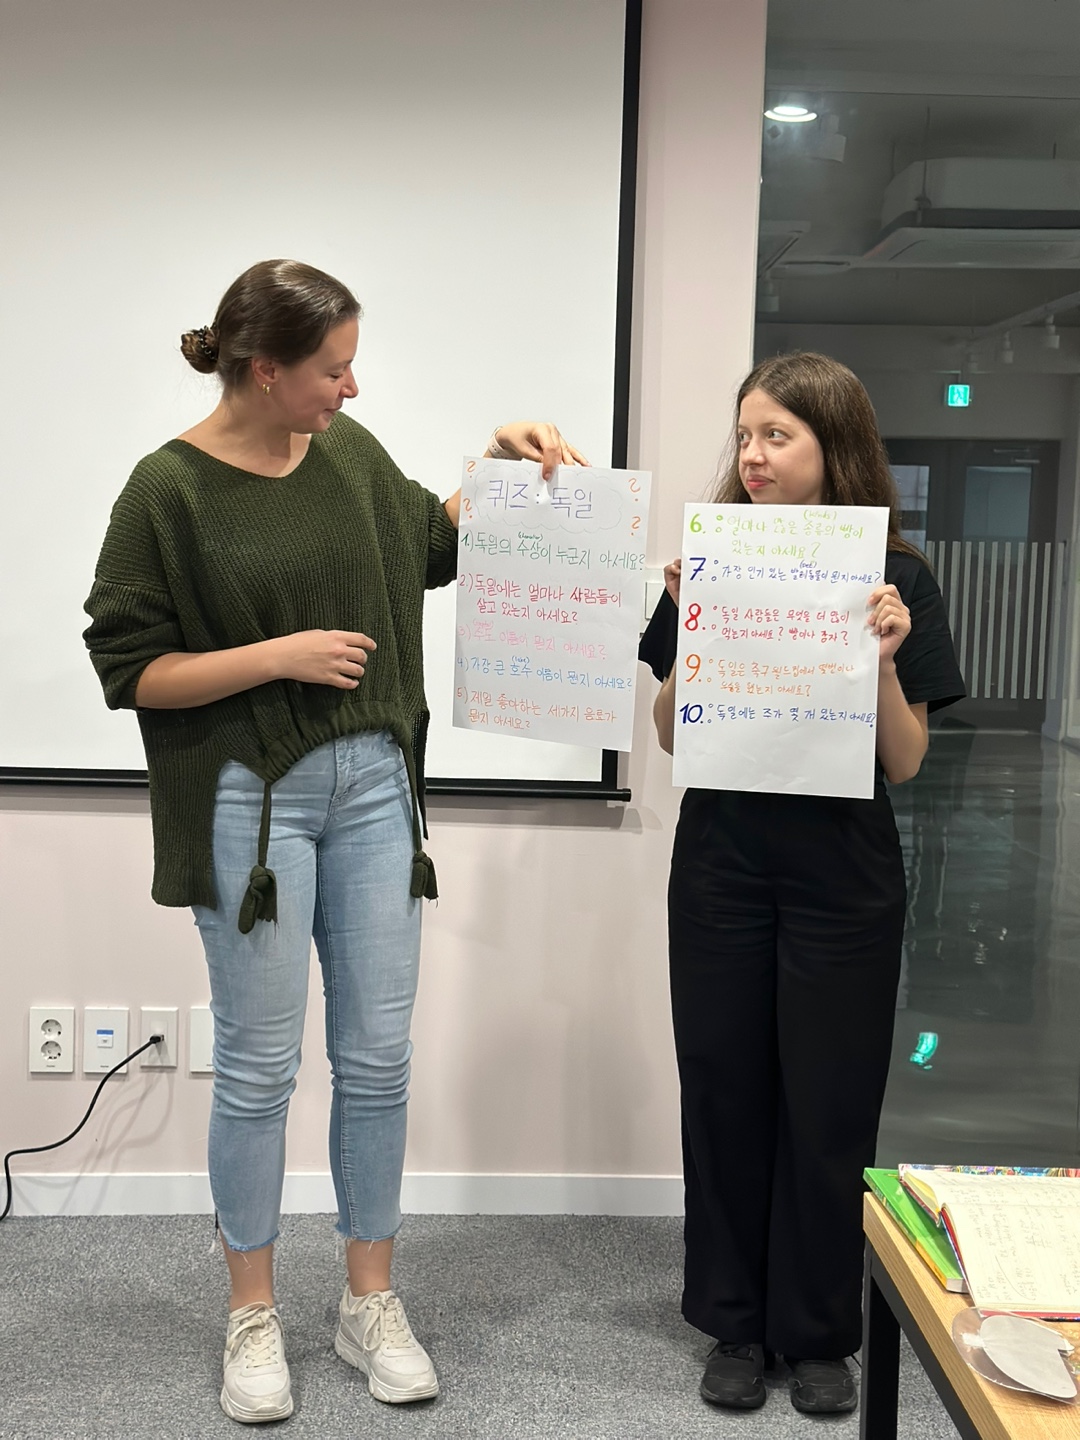 퀴즈: 독일
1.) 독일의 수상이 누군지 아세요?
2.) 독일에는 얼마나 사람들이
살고 있는지 아세요?
3) 수도 이름이 뭔지 아세요?
4) 가장 큰 호수 이름이 뭔지 아세요?
5) 제일 좋아하는 세가지 음료가
뭔지 아세요?
(kinds)
6. 얼마나 많은 종류의 빵이
있는지 아세요?
7. 가장 인기 있는 뭔지 아세요?
8. 독일 사람들은 무엇을 더 많이
먹는지 아세요? 빵이나 감자?
9. 독일은 축구 월드컵에서 몇번이나
했는지 아세요?
10. 독일에는 주가 몇 개 있는지 아세요?